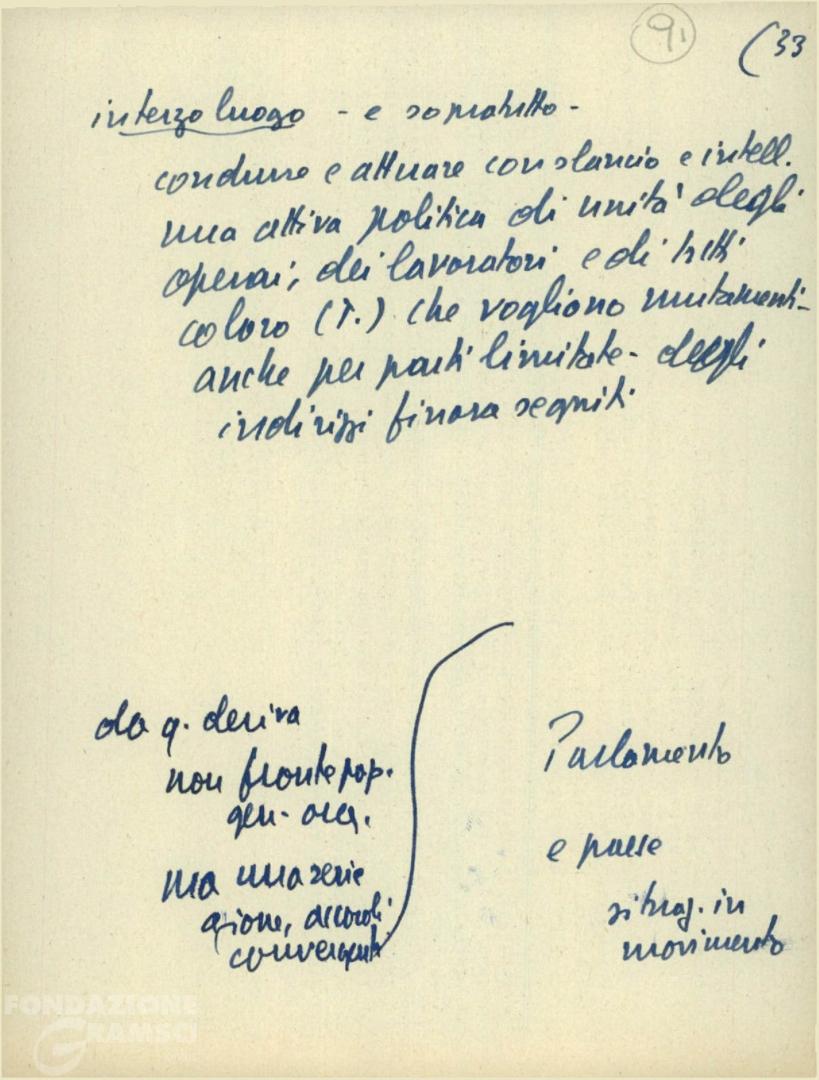 91
(33
in terzo luogo - e sopratutto -
condurre e attuare con slancio e intell.
una attiva politica di unità degli
operai, dei lavoratori e di tutti
coloro (T.) che vogliono mutamenti -
anche per parti limitate - degli
indirizzi finora seguiti
da q. deriva
non fronte pop.
gen.
ma una serie
azione, accordi
convergenti
Parlamento
e paese
situaz. in
movimento
FONDAZIONE
GRAMSCI